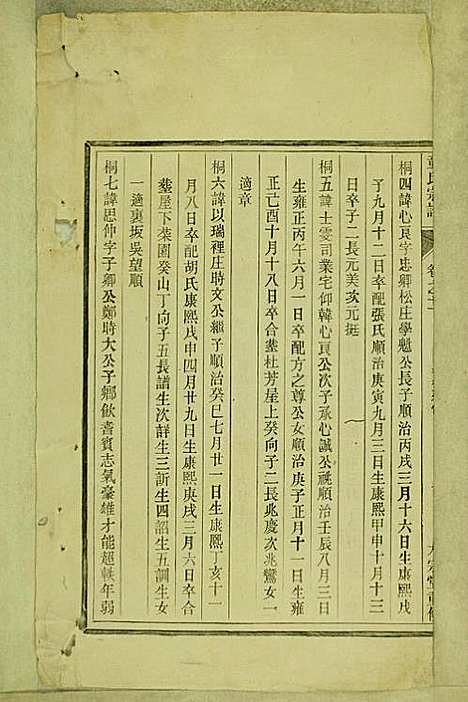 桐四諱心良字忠卿松庄學魁公長子順治丙戌三月十六日生康熙戌
子九月十二日卒配張氏順治庚寅九月三日生康熙甲申十月十三
日卒子二長元美次元挺
桐五諱士雯司業宅仰韓心良公次子承心誠公祧順治壬辰八月三日
生雍正丙午六月一日卒配方之尊公女順治庚子正月十一日生雍
正己酉十月十八日卒合塟杜芳屋上癸向子二長兆慶次兆鸞女一
適章
桐六諱以瑞種庄時文公繼子順治癸巳七月廿一日生康熙丁亥十一
月八日卒配胡氏康熙丙申四月廿九日生康熙庚戌三月六日卒合
塟屋下菜園癸山丁向子五長譜生次詳生三訢生四詔生五調生女
一適裏坂吳望順
桐七諱思仲字子卿公鄭時大公子鄉飲耆賓志氣豪雄才能超軼年弱